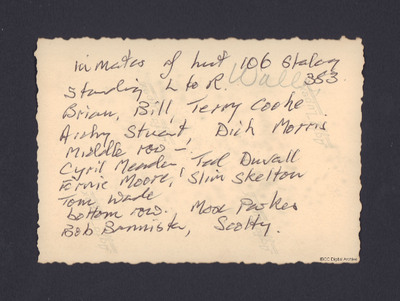 inmates of hut 106 Stalag
Wall 353.
Standing L to R.
Brian, Bill, Terry Cooke
Stuart Dich Morris
Middle row -!
Cyril Meaden Ted Duvall
Ernie Moore, Slim Skelton
Tom Wade
bottom row. Parkes
Bob Bannister, Scotty.
IBCC Digital Archive